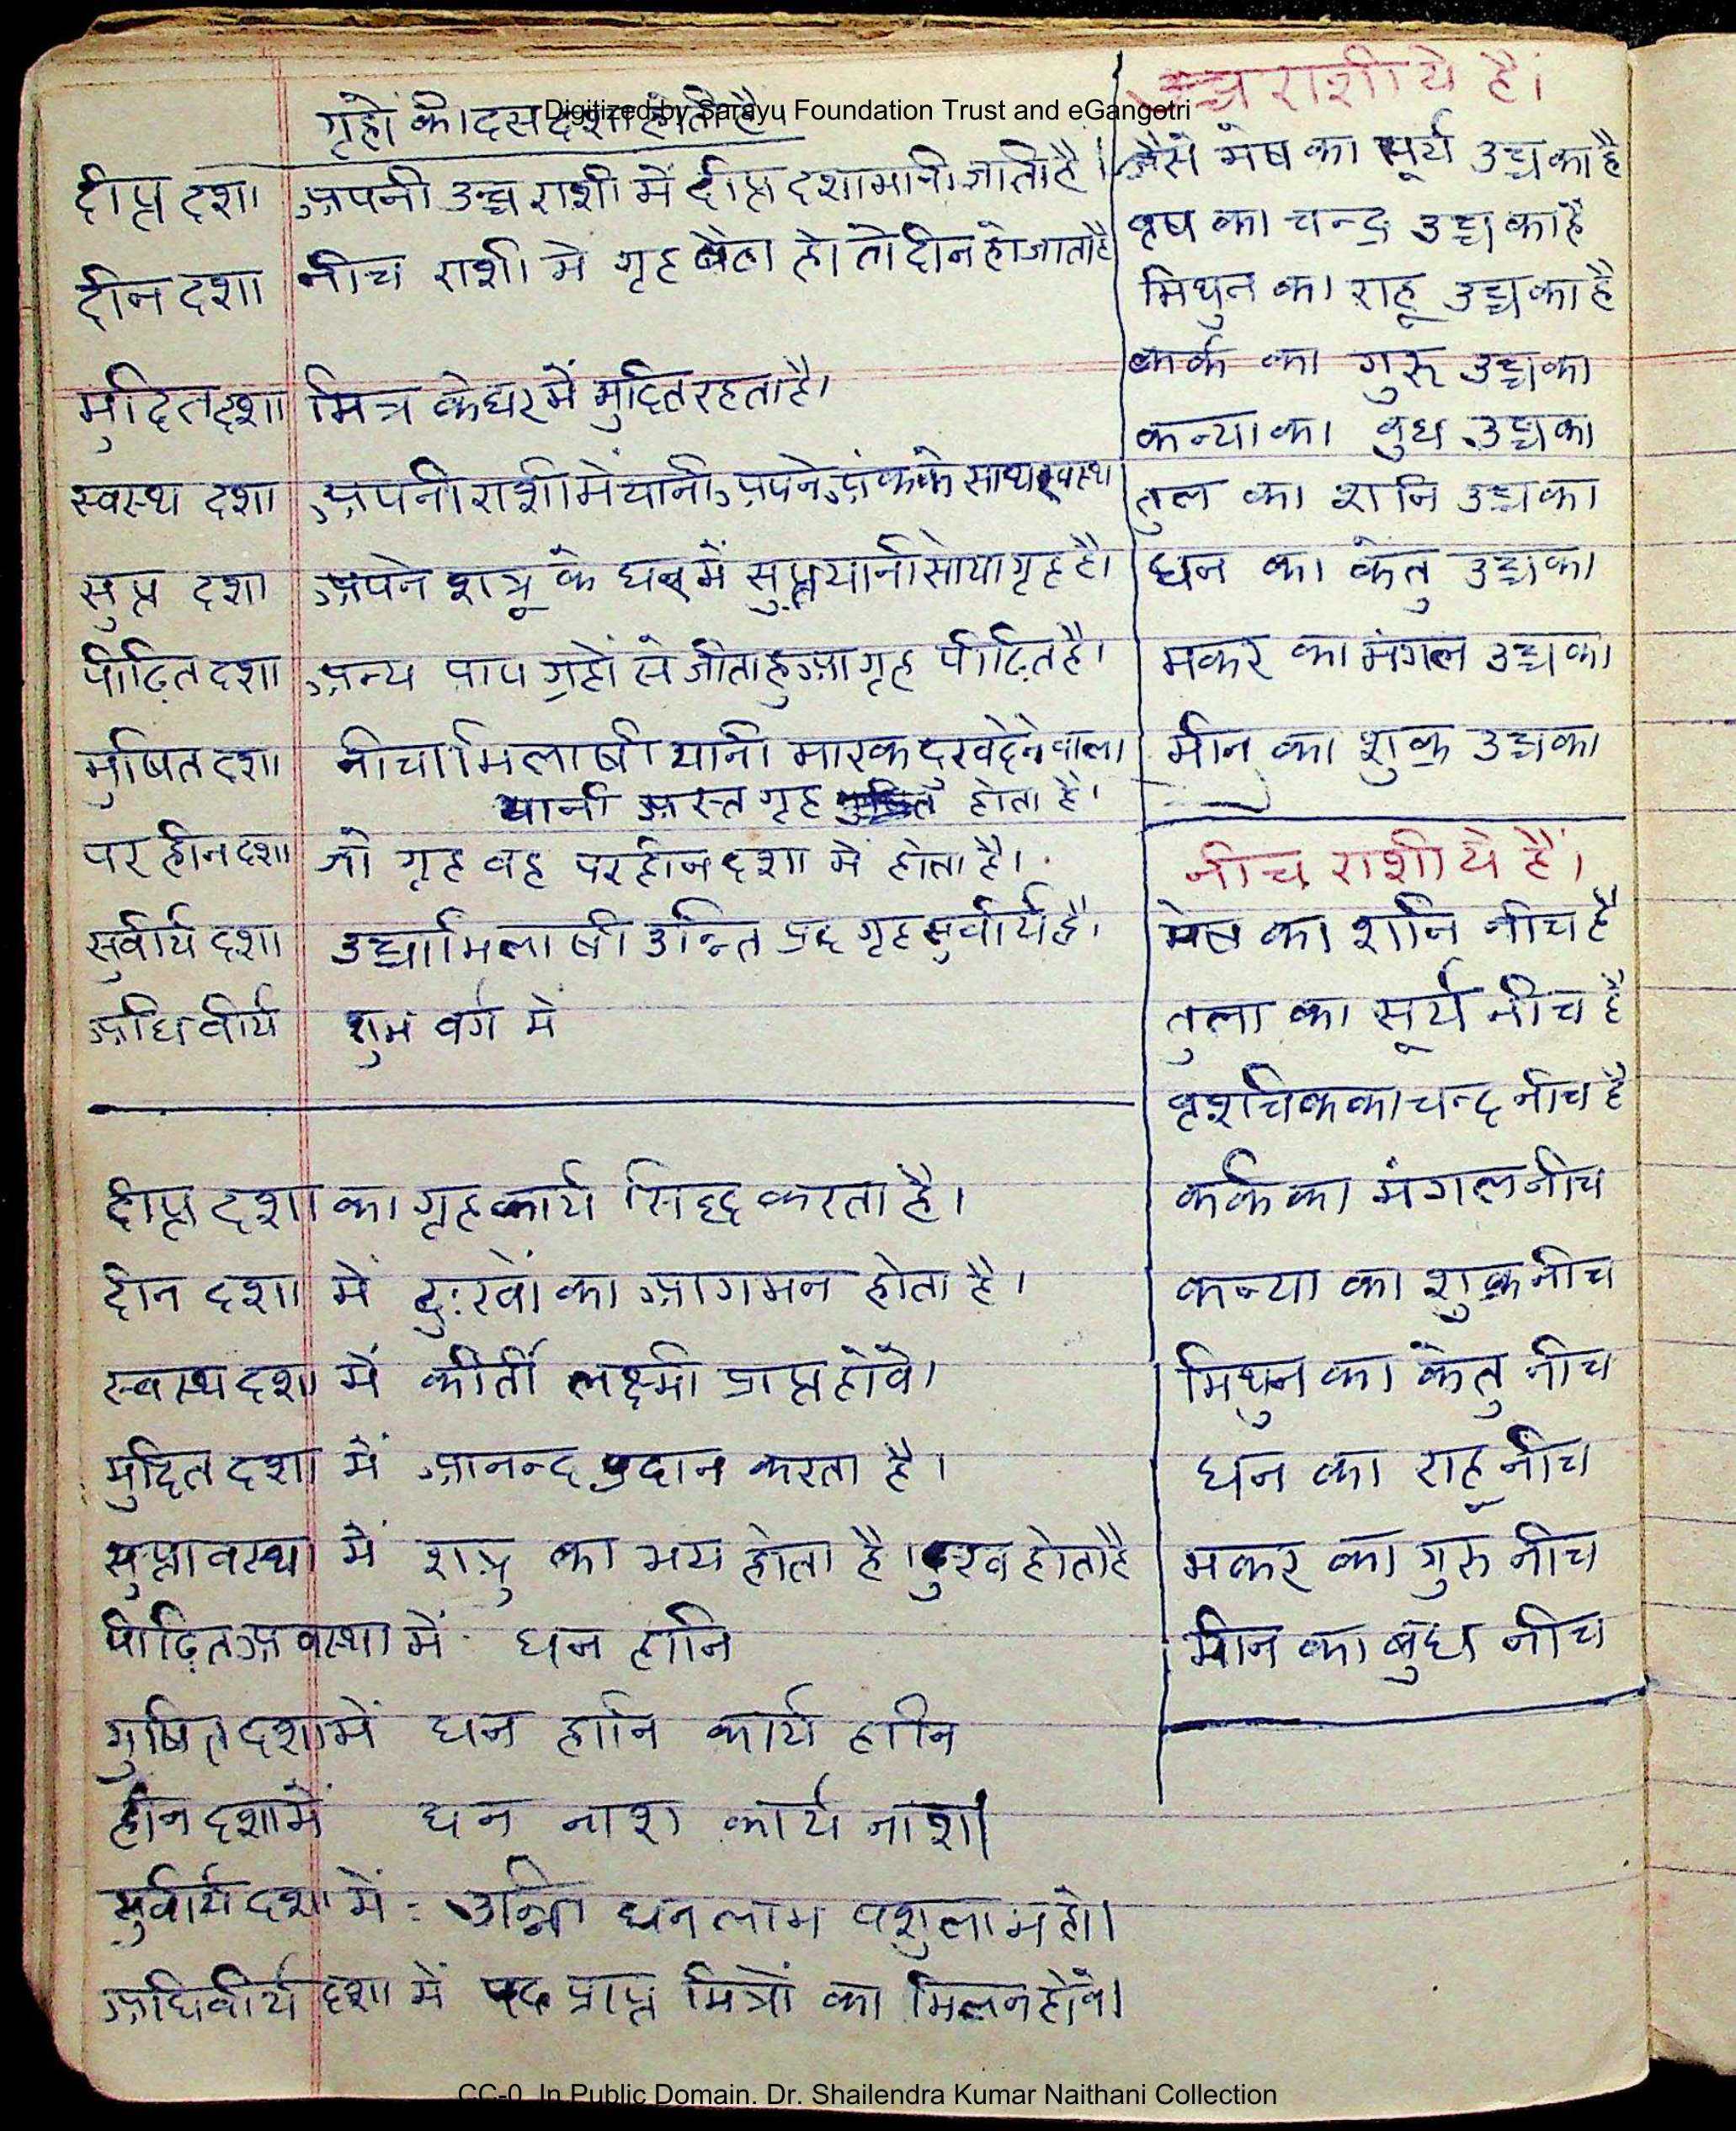 Digitized by Sarayu Foundation Trust and eGangotri
गृहों की दस दशा होती है।
दीप्त दशा अपनी उच्च राशी में दीप्त दशा मानी जाती है।
दीन दशा नीच राशी मे गृह बैठा हो तो दीन हो जाता है
मुदित दशा मित्र के घर में मुदित रहता है।
स्वस्थ दशा अपनी राशी में यानी अपने अंक के साथ स्वस्थ
सुप्त दशा अपने शत्रू के घर में सुप्त यानी सोया गृह है।
पीढ़ित दशा अन्य पाप ग्रहों से जीता हुआ गृह पीढ़ित है।
मुषित दशा नीचाभिलाषी यानी मारक दुख देने वाला
यानी अस्त गृह होता है।
परहीन दशा जो गृह वह परहीन दशा में होता है।
सुवीर्य दशा उच्चाभिलाषी उन्ति प्रद गृह सुवीर्य है।
अधिवीर्य शुभ वर्ग मे
दीप्त दशा का गृह कार्य सिद्द करता है।
दीन दशा में दुःखों का आगमन होता है।
स्वस्थ दशा में कीर्ती लक्ष्मी प्राप्त होवे।
मुदित दशा में आनन्द प्रदान करता है।
सुप्तावस्था में शत्रु का भय होता है। दुख होता है
पीढ़ित अवस्था में धन हानि
मुषित दशा में धन हानि कार्य हानि
हीन दशा में धन नाश कार्य नाश।
सुवीर्य दशा में : धन लाभ पशु लाभ हो।
अधिवीर्य दशा में पद प्राप्त मित्रों का मिलन होवे।
उच्च राशी ये है।
जैसे मेष का सूर्य उच्च का है
वृष का चन्द्र उच्च का है
मिथुन का राहू उच्च का है
कर्क का गुरू उच्च का
कन्या का बुध उच्च का
तुल का शनि उच्च का
धन का केतु उच्च का
मकर का मंगल उच्च का
मीन का शुक्र उच्च का
नीच राशी ये है।
मेष का शनि नीच है
तुला का सूर्य नीच है
वृशचिक का चन्द्र नीच है
कर्क का मंगल नीच
कन्या का शुक्र नीच
मिथुन का केतु नीच
धन का राहू नीच
मकर का गुरु नीच
मीन का बुध नीच
CC-0. In Public Domain. Dr. Shailendra Kumar Naithani Collection